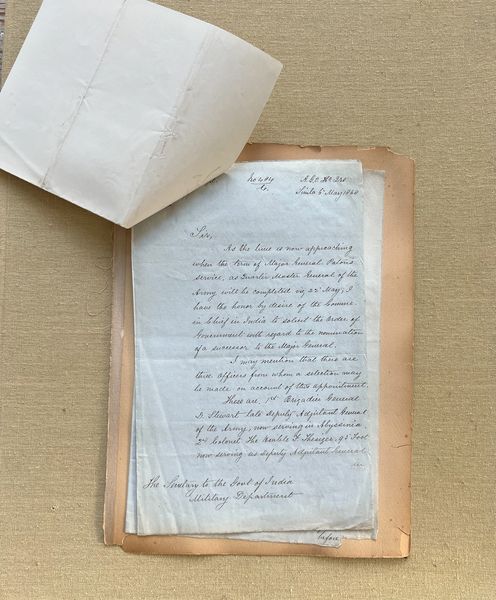 No 404
A.G.O. Hd. Qrs
to.
Simla 5th May 1868
Sir,
As the time is now approaching
when the term of Major General Paton's
service, as Quarter Master General of the
Army will be completed viz 22d May, I
have the honor by desire of the Commr.
in Chief in India to solicit the order of
Government with regard to the nomination
of a successor to the Major General.
I may mention that there are
three officers from whom a selection may
be made on account of this appointment.
These are. 1st Brigadier General
D. Stewart late Deputy Adjutant General
of the Army, now serving in Abyssinia
2d Colonel The Honble F. Thesiger, 95 Foot
now serving as Deputy Adjutant General
The Secretary to the Govt of India
Military Department